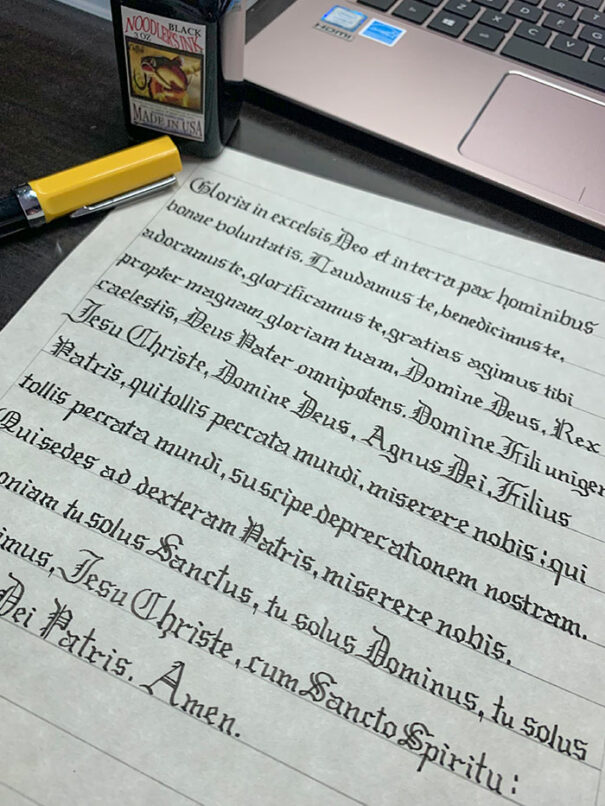 BLACK
NOODLER'S INK
3 OZ
MADE IN USA
HDMI
Gloria in excelsis Deo et in terra pax hominibus
bonae voluntatis. Laudamus te, benedicimus te,
adoramus te, glorificamus te, gratias agimus tibi
propter magnam gloriam tuam, Domine Deus, Rex
caelestis, Deus Pater omnipotens. Domine Fili unigen
Jesu Christe, Domine Deus, Agnus Dei, Filius
Patris, qui tollis peccata mundi, miserere nobis: qui
tollis peccata mundi, suscipe deprecationem nostram.
Qui sedes ad dexteram Patris, miserere nobis.
oniam tu solus Sanctus, tu solus Dominus, tu solus
imus, Jesu Christe, cum Sancto Spiritu:
Dei Patris. Amen.